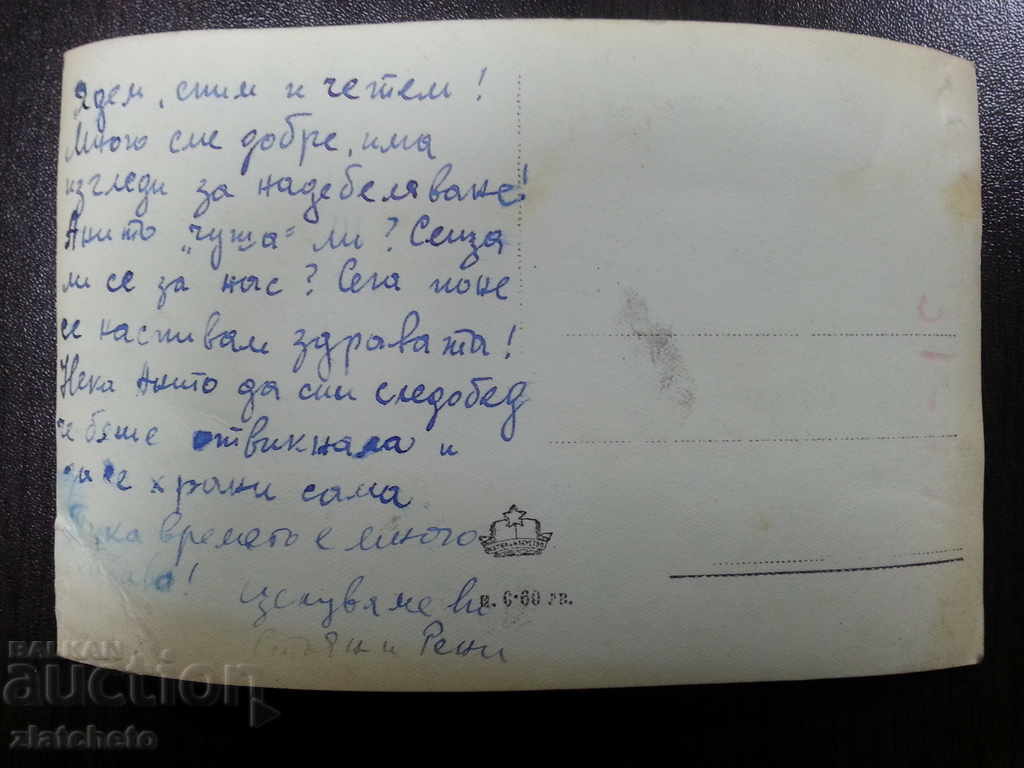 Ядем, спим и четем!
Много сме добре, има
изгледи за надебеляване!
Анито „чужа" ли? Сеща
ли се за нас? Сега поне
се наспивам здравата!
Нека Анито да спи следобед
че беше отвикнала и
да се храни сама.
Тука времето е много
Целуваме ви
Стоян и Рени
ц. 0·60 лв.
BALKAN
auction
zlatcheto